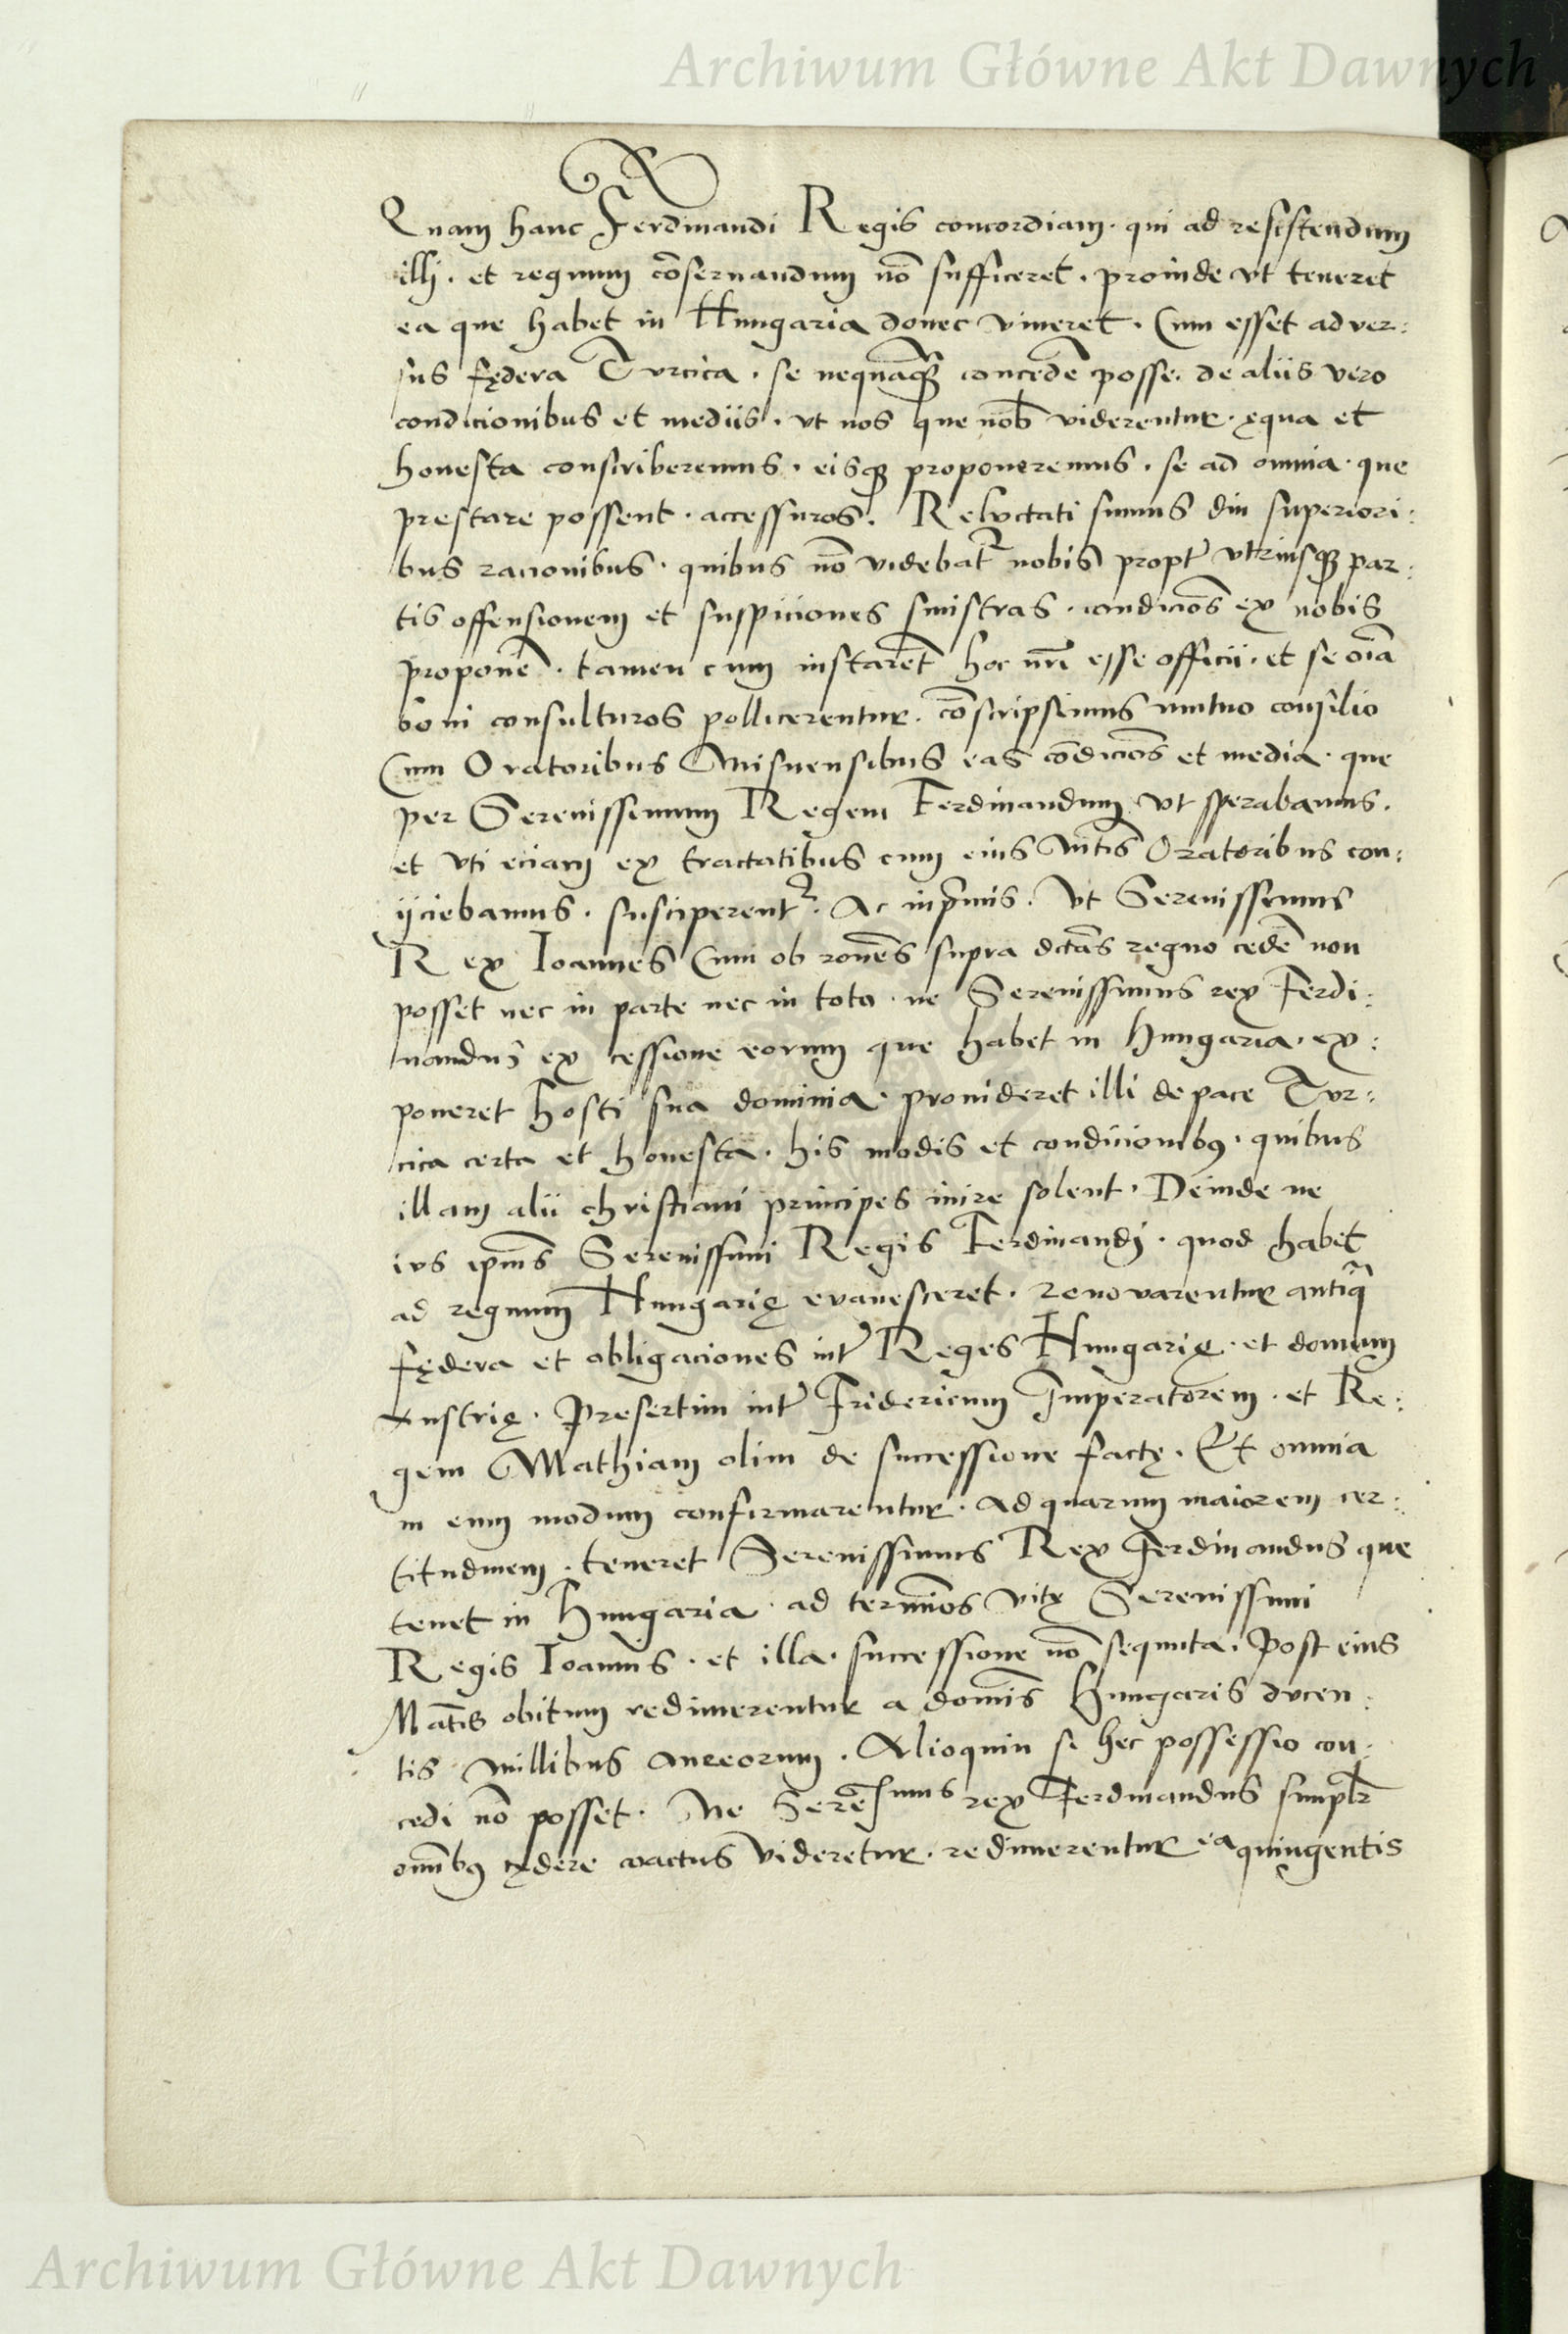 Archiwum Główne Akt Dawnych
Quam hanc Ferdinandi Regis concordiam · qui ad resistendum
illi · et regnum cōseruandum nō sufficeret · proinde vt teneret
ea que habet in Hungaria donec viueret · Cum esset aduer:
sus fędera Turcica · se nequaq̃ȝ concedē posse · de aliis vero
condicionibus et mediis · vt nos que nob̄ viderentur · ęqua et
honesta conscriberemus · eisqȝ proponeremus · se ad omnia · que
prestare possent · accessuros. Reluctati sumus diu superiori:
bus racionibus · quibus nō videbat᷑ nobis propt᷑ vtriusqȝ par:
tis offensionem et suspiciones sinistras · condiciōs ex nobis
proponē · tamen cum instarēt hoc nr̄i esse officii · et se oīa
boni consulturos pollicerentur · cōscripsimus mutuo consilio
Cum Oratoribus Misnensibus eas cōdiciōs et media · que
per Serenissimum Regem Ferdinandum vt sperabamus.
et vti eciam ex tractatibus cum eius Mtīs Oratoribus con:
ijciebamus · susciperent᷑ · Ac inp̄mis · Vt Serenissimus
Rex Ioannes Cum ob ronēs supra dctās regno cedē non
posset nec in parte nec in toto · ne Serenissimus rex Ferdi:
nandus ex cessione eorum que habet in Hungaria · ex:
poneret hosti sua dominia · prouideret illi de pace Tur:
cica certa et honesta · his modis et condicionibꝰ · quibus
illam alii christiani principes inire solent · Deinde ne
ius ipīus Serenissimi Regis Ferdinandi · quod habet
ad regnum Hungarię euanesceret · renouarentur antiq̃
fędera et obligaciones int᷑ Reges Hungarię · et domum
Austrię · Presertim int᷑ Fridericum Imperatorem · et Re:
gem Mathiam olim de successione factę · Et omnia
in eum modum confirmarentur · Ad quarum maiorem cer:
titudinem · teneret Serenissimus Rex Ferdinandus que
tenet in Hungaria · ad termiōs vitę Serenissimi
Regis Ioannis · et illa · successione nō sequuta · Post eius
Matīs obitum redimerentur a domīs Hungaris ducen:
tis millibus aureorum · Alioquin si hec possessio con:
cedi nō posset · Ne Serēsimus rex Ferdinandus simplr̄
omībꝰ cędere coactus videretur · redimerentur ea quingentis
Archiwum Główne Akt Dawnych